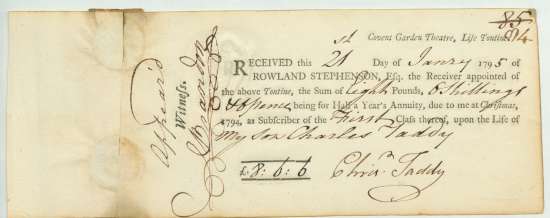 85
84
Covent Garden Theatre, Life Tontine
RECEIVED this 21 st Day of Janry 1795 of
ROWLAND STEPHENSON, Esq. the Receiver appointed of
the above Tontine, the Sum of Eight Pounds, 6 Shillings
& 6 pence being for Half a Year's Annuity, due to me at Christmas,
1794, as Subscriber of the First Class thereof, upon the Life of
My son Charles Taddy
£ 8:6:6
Chrisr. Taddy
Appear'd
Witness.
JBrandon